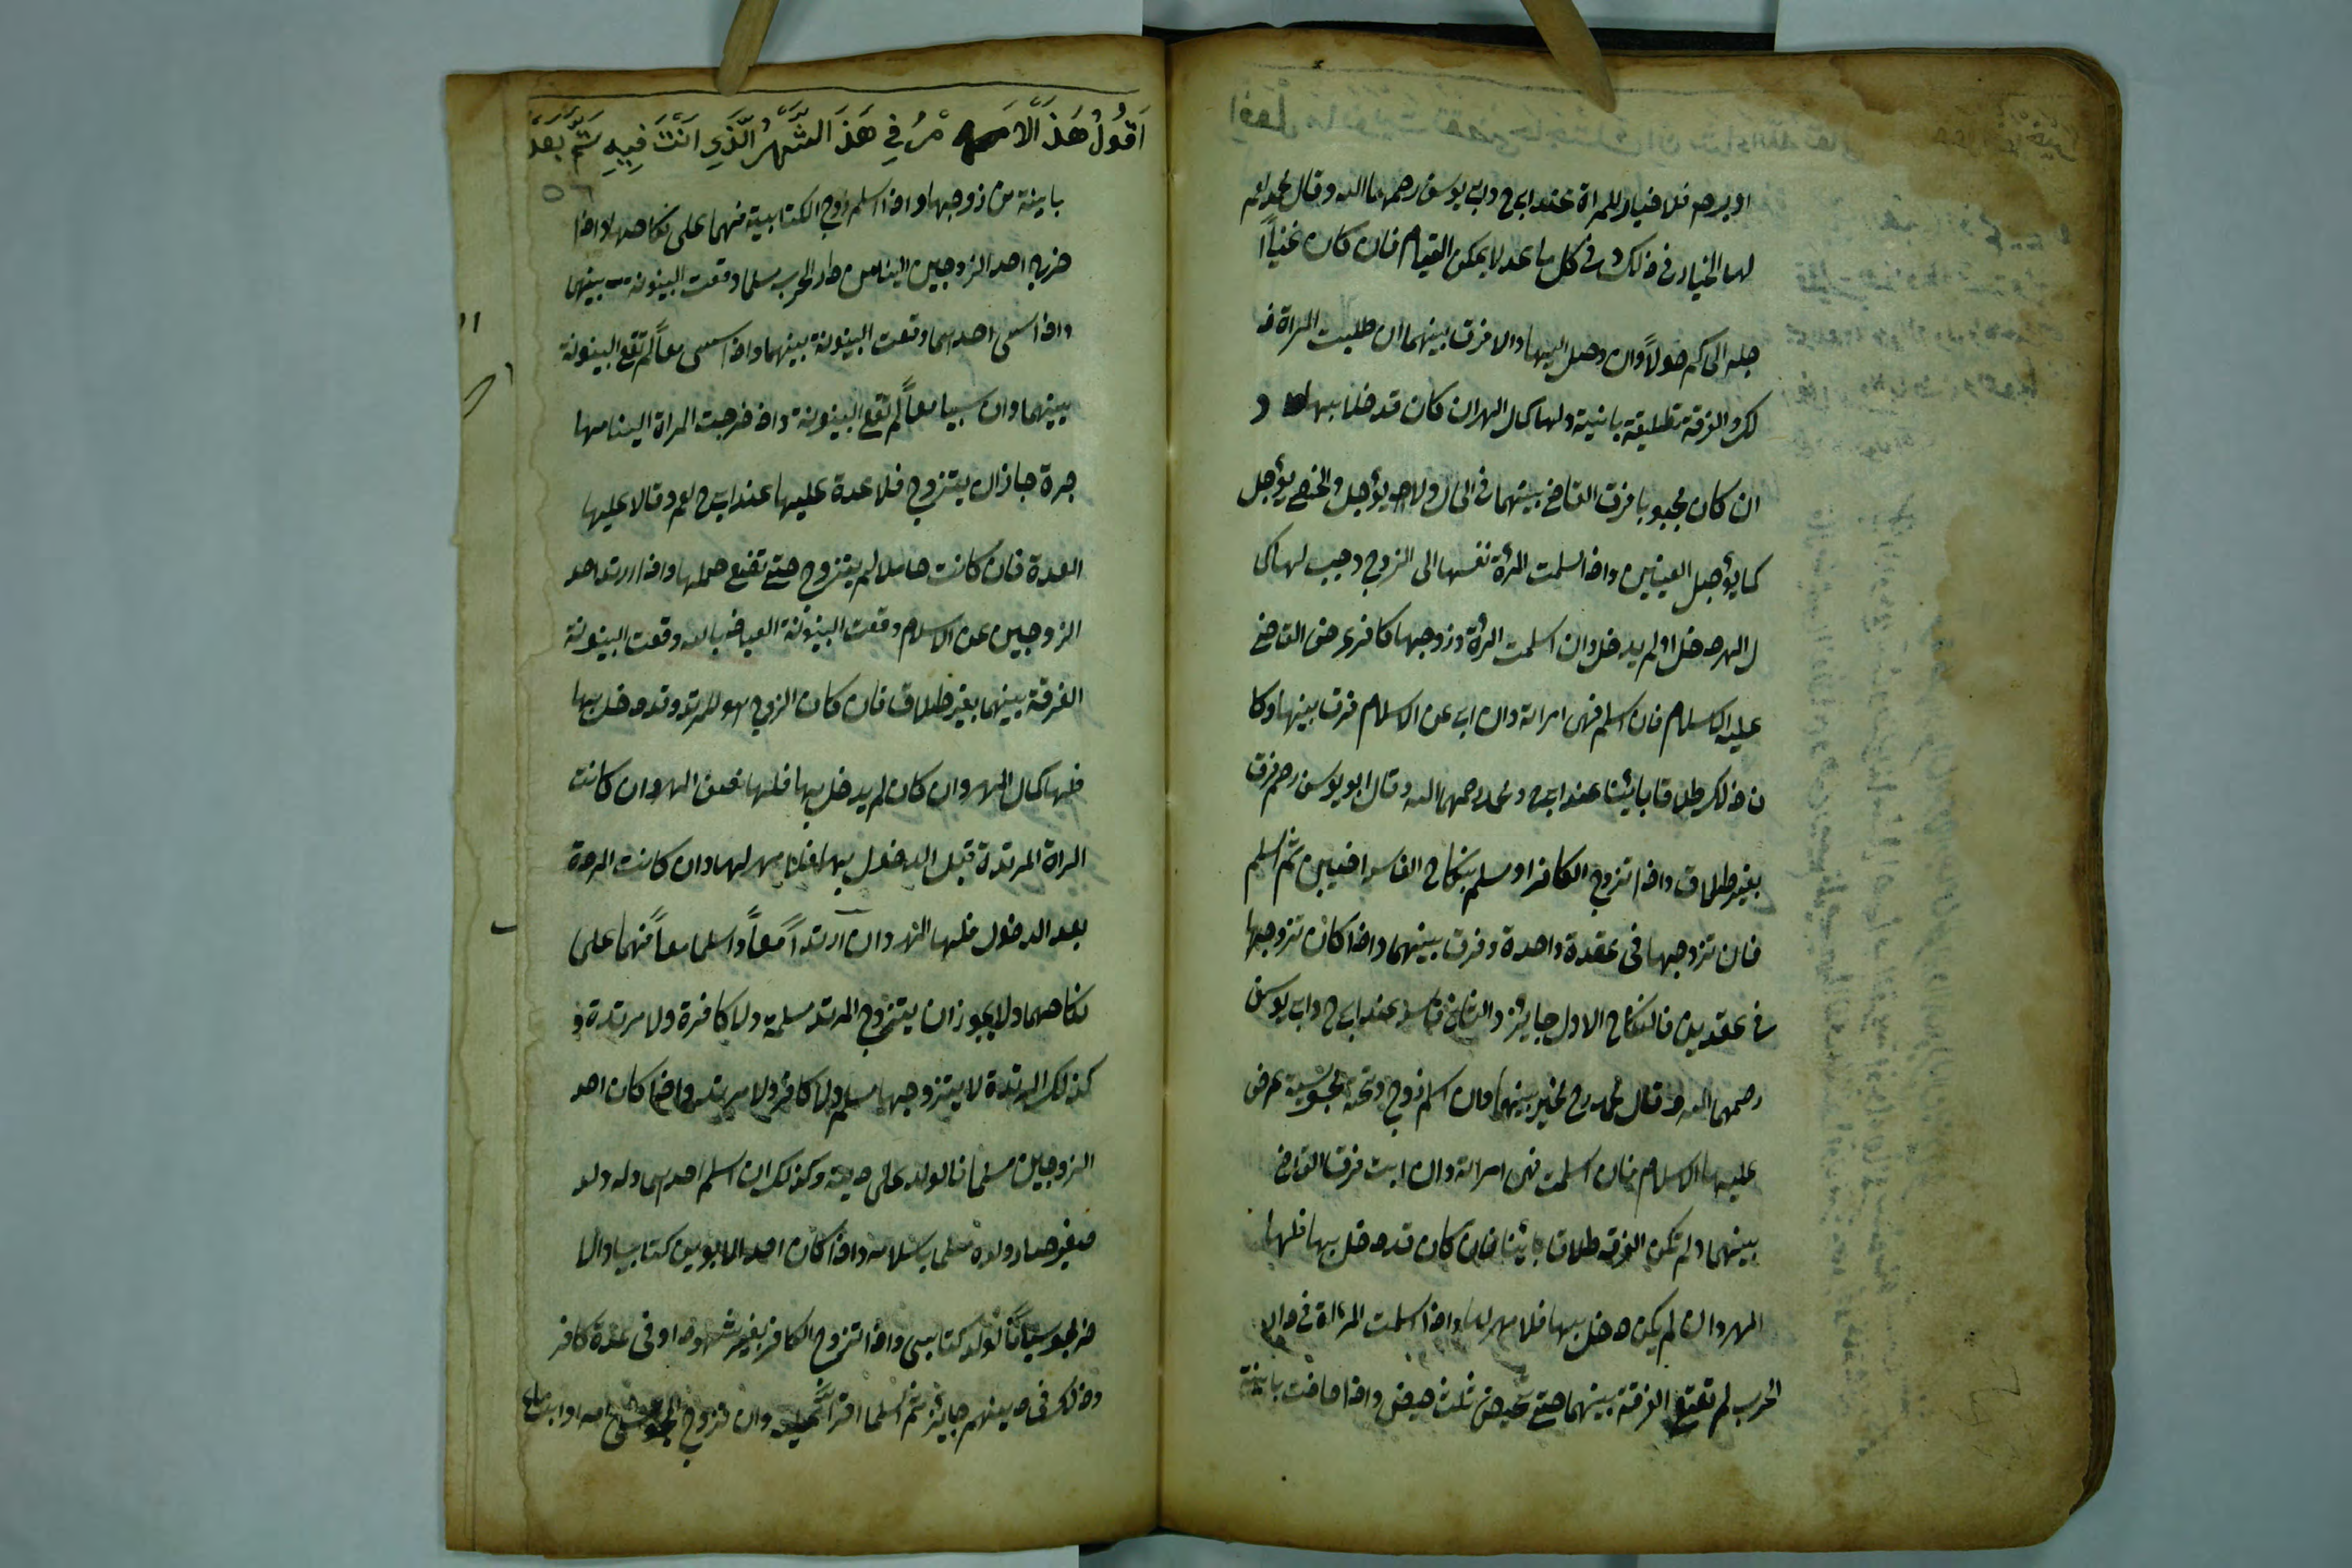 او برص فلا خيار للمراة عند ابي ح وابي يوسف رحمهما الله وقال محمد لعم
لها الخيار في ذلك و في كل ما عد لا يمكن القيام فان كان عنيناً
جله الحاكم حولاً وان وصل اليها والا فرق بينهما ان طلبت المراة ذ
لك والفرقة تطليقة باينة ولها كمال المهر ان كان قد خلا بها و
ان كان مجبوبا فرق القاضي بينهما في الحال ولا يؤجل والخصي يؤجل
كما يؤجل العينين واذا سلمت المرأة نفسها الى الزوج وجب لها كما
ل المهر دخل او لم يدخل وان اسلمت المرأة وزوجها كافر عرض القاضي
عليه الاسلام فان اسلم فهي امراته وان ابى عن الاسلام فرق بينهما وكا
ن ذلك طلاقا بائنا عند ابي ح ومحمد رحمهما الله وقال ابو يوسف رحم فرق
بغير طلاق واذا تزوج الكافر او مسلم بنكاح الفاسد اختين ثم اسلم
فان تزوجها في عقدة واحدة وفرق بينهما واذا كان تزوجها
في عقدين فالنكاح الاول جايز والثاني فاسد عند ابي ح وابي يوسف
رحمهما الله وقال محمد رح يخير بينهما وان اسلم زوج وتحته مجوسية عرض
عليها الاسلام فان اسلمت فهي امراته وان ابت فرق القاضي
بينهما ولم تكن الفرقه طلاق بائنا فان كان قد دخل بها فلها
المهر وان لم يكن دخل بها فلا مهر لها واذا اسلمت المرءاة في دار
الحرب لم تقع الفرقة بينهما حتي تحيض ثلث حيض واذا حاضت باينة
اَقُولُ هَذَ الَّا مْرُ فِي هَذَ الشَّهْرُ الَّذِي اَنْتَ فِيهِ ثُمَّ بَعْدَ
باينة من زوجها واذا اسلم زوج الكتابية فهما على نكاحهما واذا
خرج احد الزوجين الينا من دار الحرب مسلما وقعت البينونة بينهما
واذا سبى احدهما وقعت البينونة بينهما واذا سبى معاً لم تقع البينونة
بينهما وان سبيا معاً لم تقع البينونة واذ خرجت المراة الينا مها
جرة جاز ان يتزوج فلا عدة عليها عند ابي ح لعم وقالا عليها
العدة فان كانت حاملا لم يتزوج حتي تضع حملها واذا ارتد احد
الزوجين عن الاسلام وقعت البينونة العياذ بالله وقعت البينونة
الفرقة بينهما بغير طلاق فان كان الزوج هو المرتد وقد دخل بها
فلها كمال المهر وان كان لم يدخل بها فلها نصف المهر وان كانت
المراة المرتدة قبل الدخول بها فلا مهر لها وان كانت الردة
بعد الدخول فلها المهر وان ارتداً معاً واسلما معاً فهما على
نكاحهما ولا يجوز ان يتزوج المرتد مسلمة ولا كافرة ولا مرتدة و
كذلك المرتدة لا يتزوجها مسلم ولا كافر ولا مرتد واذا كان احد
الزوجين مسلما فالولد على دينه وكذلك ان اسلم احدهما وله ولد
صغير صار ولده مسلما باسلامه واذا كان احد الابوين كتابيا والا
خر مجوسياً فالولد كتابي واذا تزوج الكافر بغير شهود او في عدة كافر
وذلك في دينهم جايز ثم اسلما اقرا عليه وان تزوج المجوسي امه او ابنته